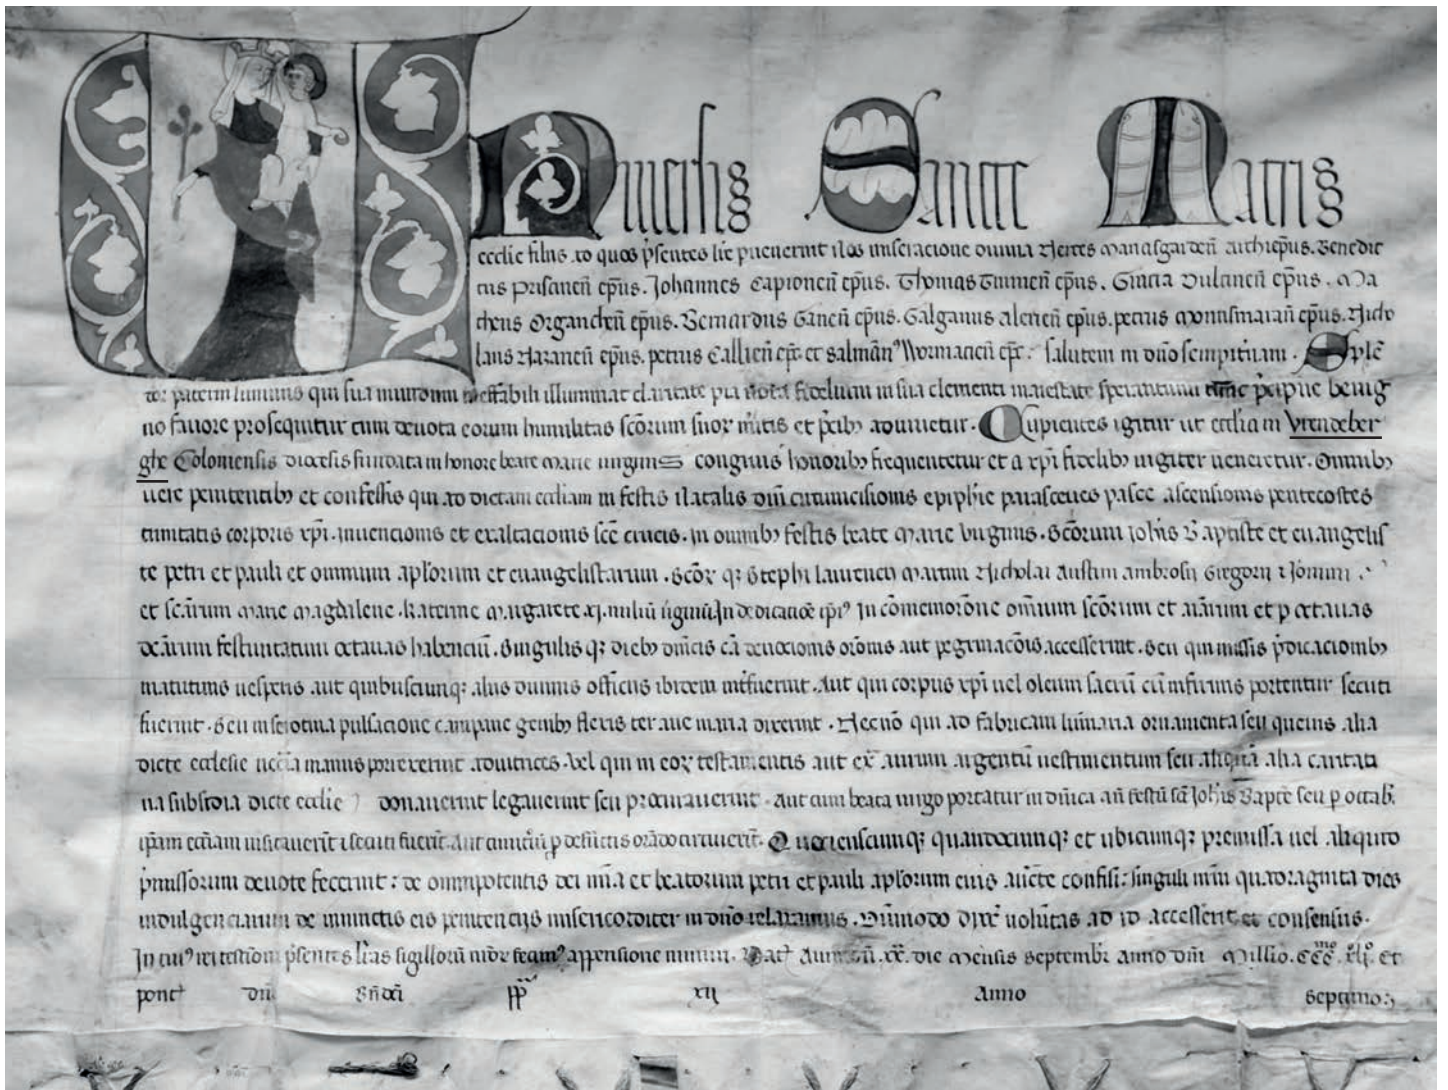 Universis Sancte Matris
ecclie filiis ad quos p̄sentes lr̄e pervenerint n̄os miseracione divina Nerses Manasgarden̄ archiep̄us. Benedic
tus Prisanen̄ ep̄us. Johannes Capronen̄ ep̄us. Thomas Tininen̄ ep̄us. Gracia Dulanen̄ ep̄us. Ma
theus Organchen̄ ep̄us. Bernardus Ganen̄ ep̄us. Galganus Alerien̄ ep̄us. petrus Monnsmaran̄ ep̄us. Nicho
laus Nazaren̄ ep̄us. petrus Callien̄ ep̄c et salman̄⁹ Wormacien̄ ep̄c. salutem in dn̄o sempit̄nam. Splē
dor paterni luminis qui sua mundum ineffabili illuminat claritate pia vota fidelium in sua clementi maiestate sperantium tunc p̄cipue benig
no favore prosequitur cum devota eorum humilitas sc̄orum suor m̄itis et p̄cib⁹ adiuvetur. Cupientes igitur ut eccl̄ia in Vrendeber
ghe Coloniensis diocesis fundata in honore beate Marie virginis congruis honorib⁹ frequentetur et a xp̄i fidelib⁹ iugiter veneretur. Omnib⁹
vere penitentib⁹ et confessis qui ad dictam eccl̄iam in festis Natalis dn̄i circumcisionis epiph̄ie parasceves pasce ascensionis pentecostes
trinitatis corporis xp̄i. invencionis et exaltacionis sc̄e crucis. in omnib⁹ festis beate Marie virginis. Sc̄orum ioh̄is Baptiste et evangelis
te petri et pauli et omnium ap̄lorum et evangelistarum. sc̄oꝝ q; Steph̄i laurencii Martini Nicholai Austini ambrosii Gregorii
et sc̄arum Marie Magdalene. katerine Margarete xj. miliū v̄ginū. In dedicac̄oe ip̄i⁹ In com̄emorac̄one om̄ium sc̄orum et ai̅arum et p octavas
dc̄arum festivitatum octavas habenciū. Singulis q; dieb⁹ dn̄icis cā devocionis or̄onis aut pegrinac̄ois accesserint. Seu qui missis p̄dicacionib⁹
matutinis vesperis aut quibuscunq; aliis divinis officiis ibidem int̄fuerint. Aut qui corpus xp̄i vel oleum sacrū cū infirmis portentur secuti
fuerint. Seu in serotina pulsacione campane genib⁹ flexis ter ave maria dixerint. Necnō qui ad fabricam luminaria ornamenta seu quevis alia
dicte ecclesie necc̄ia manus porrexerint adiutrices. Vel qui in eoꝝ testamentis aut ex̄ aurum argentū vestimentum seu aliqua alia caritati
va subsidia dicte ecclie donaverint legaverint seu procuraverint. Aut cum beata virgo portatur in dn̄ica an̄ festū sc̄i Joh̄is Bapt̄e seu p octab̄.
ip̄am ecc̄iam visitaverīt secuti fuerīt. Aut cimit̄iū p defunctis orādo circuierīt. Quocienscunq; quandocunq; et ubicunq; premissa vel aliquid
p̄missorum devote fecerint: de omnipotentis dei mīa et beatorum petri et pauli ap̄lorum eius auct̄e confisi: singuli nr̄m quadraginta dies
indulgenciarum de iniunctis eis penitenciis misericorditer in dn̄o relaxamus. Dūmodo dyoc̄ volūtas ad id accesserit et consensus.
In cui⁹ rei testīon̄ p̄sentes lr̄as sigillorū nr̄oꝝ fecim⁹ appensione muniri. Dat̄ Avinion̄. xx. die Mensis Septembr̄ anno dn̄i Millio. CCC.mo xlj.o et
pont̄ dn̄i Bn̄dc̄i pp̄ xij Anno Septimo: